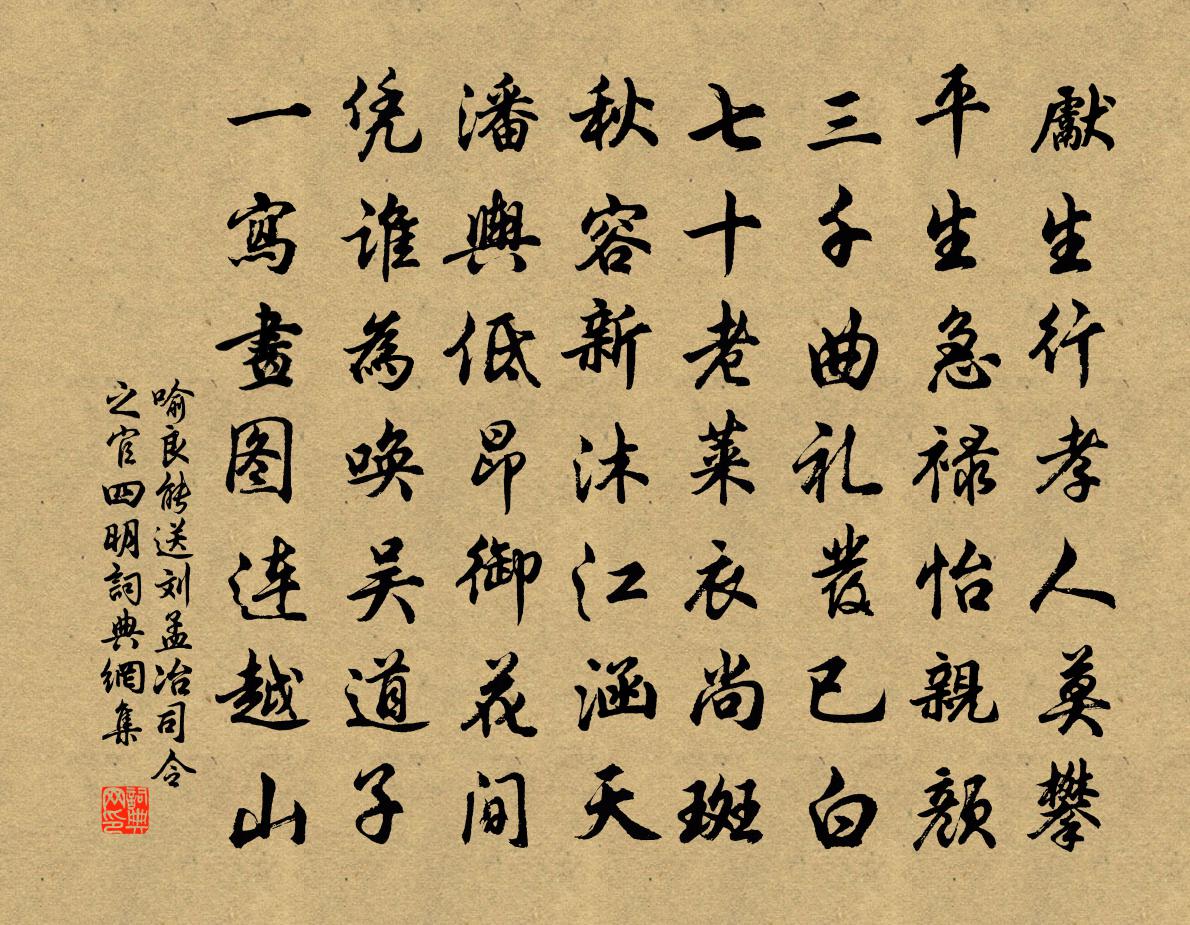 獻生行孝人莫攀
平生急禄怡親顔
三千曲礼發已白
七十老莱衣尚斑
秋容新沐江涵天
潘輿低昂御花間
凭誰為唤吴道子
一寫畫图连越山
喻良能送刘孟冶司令
之官四明詞典網集
詞典网印